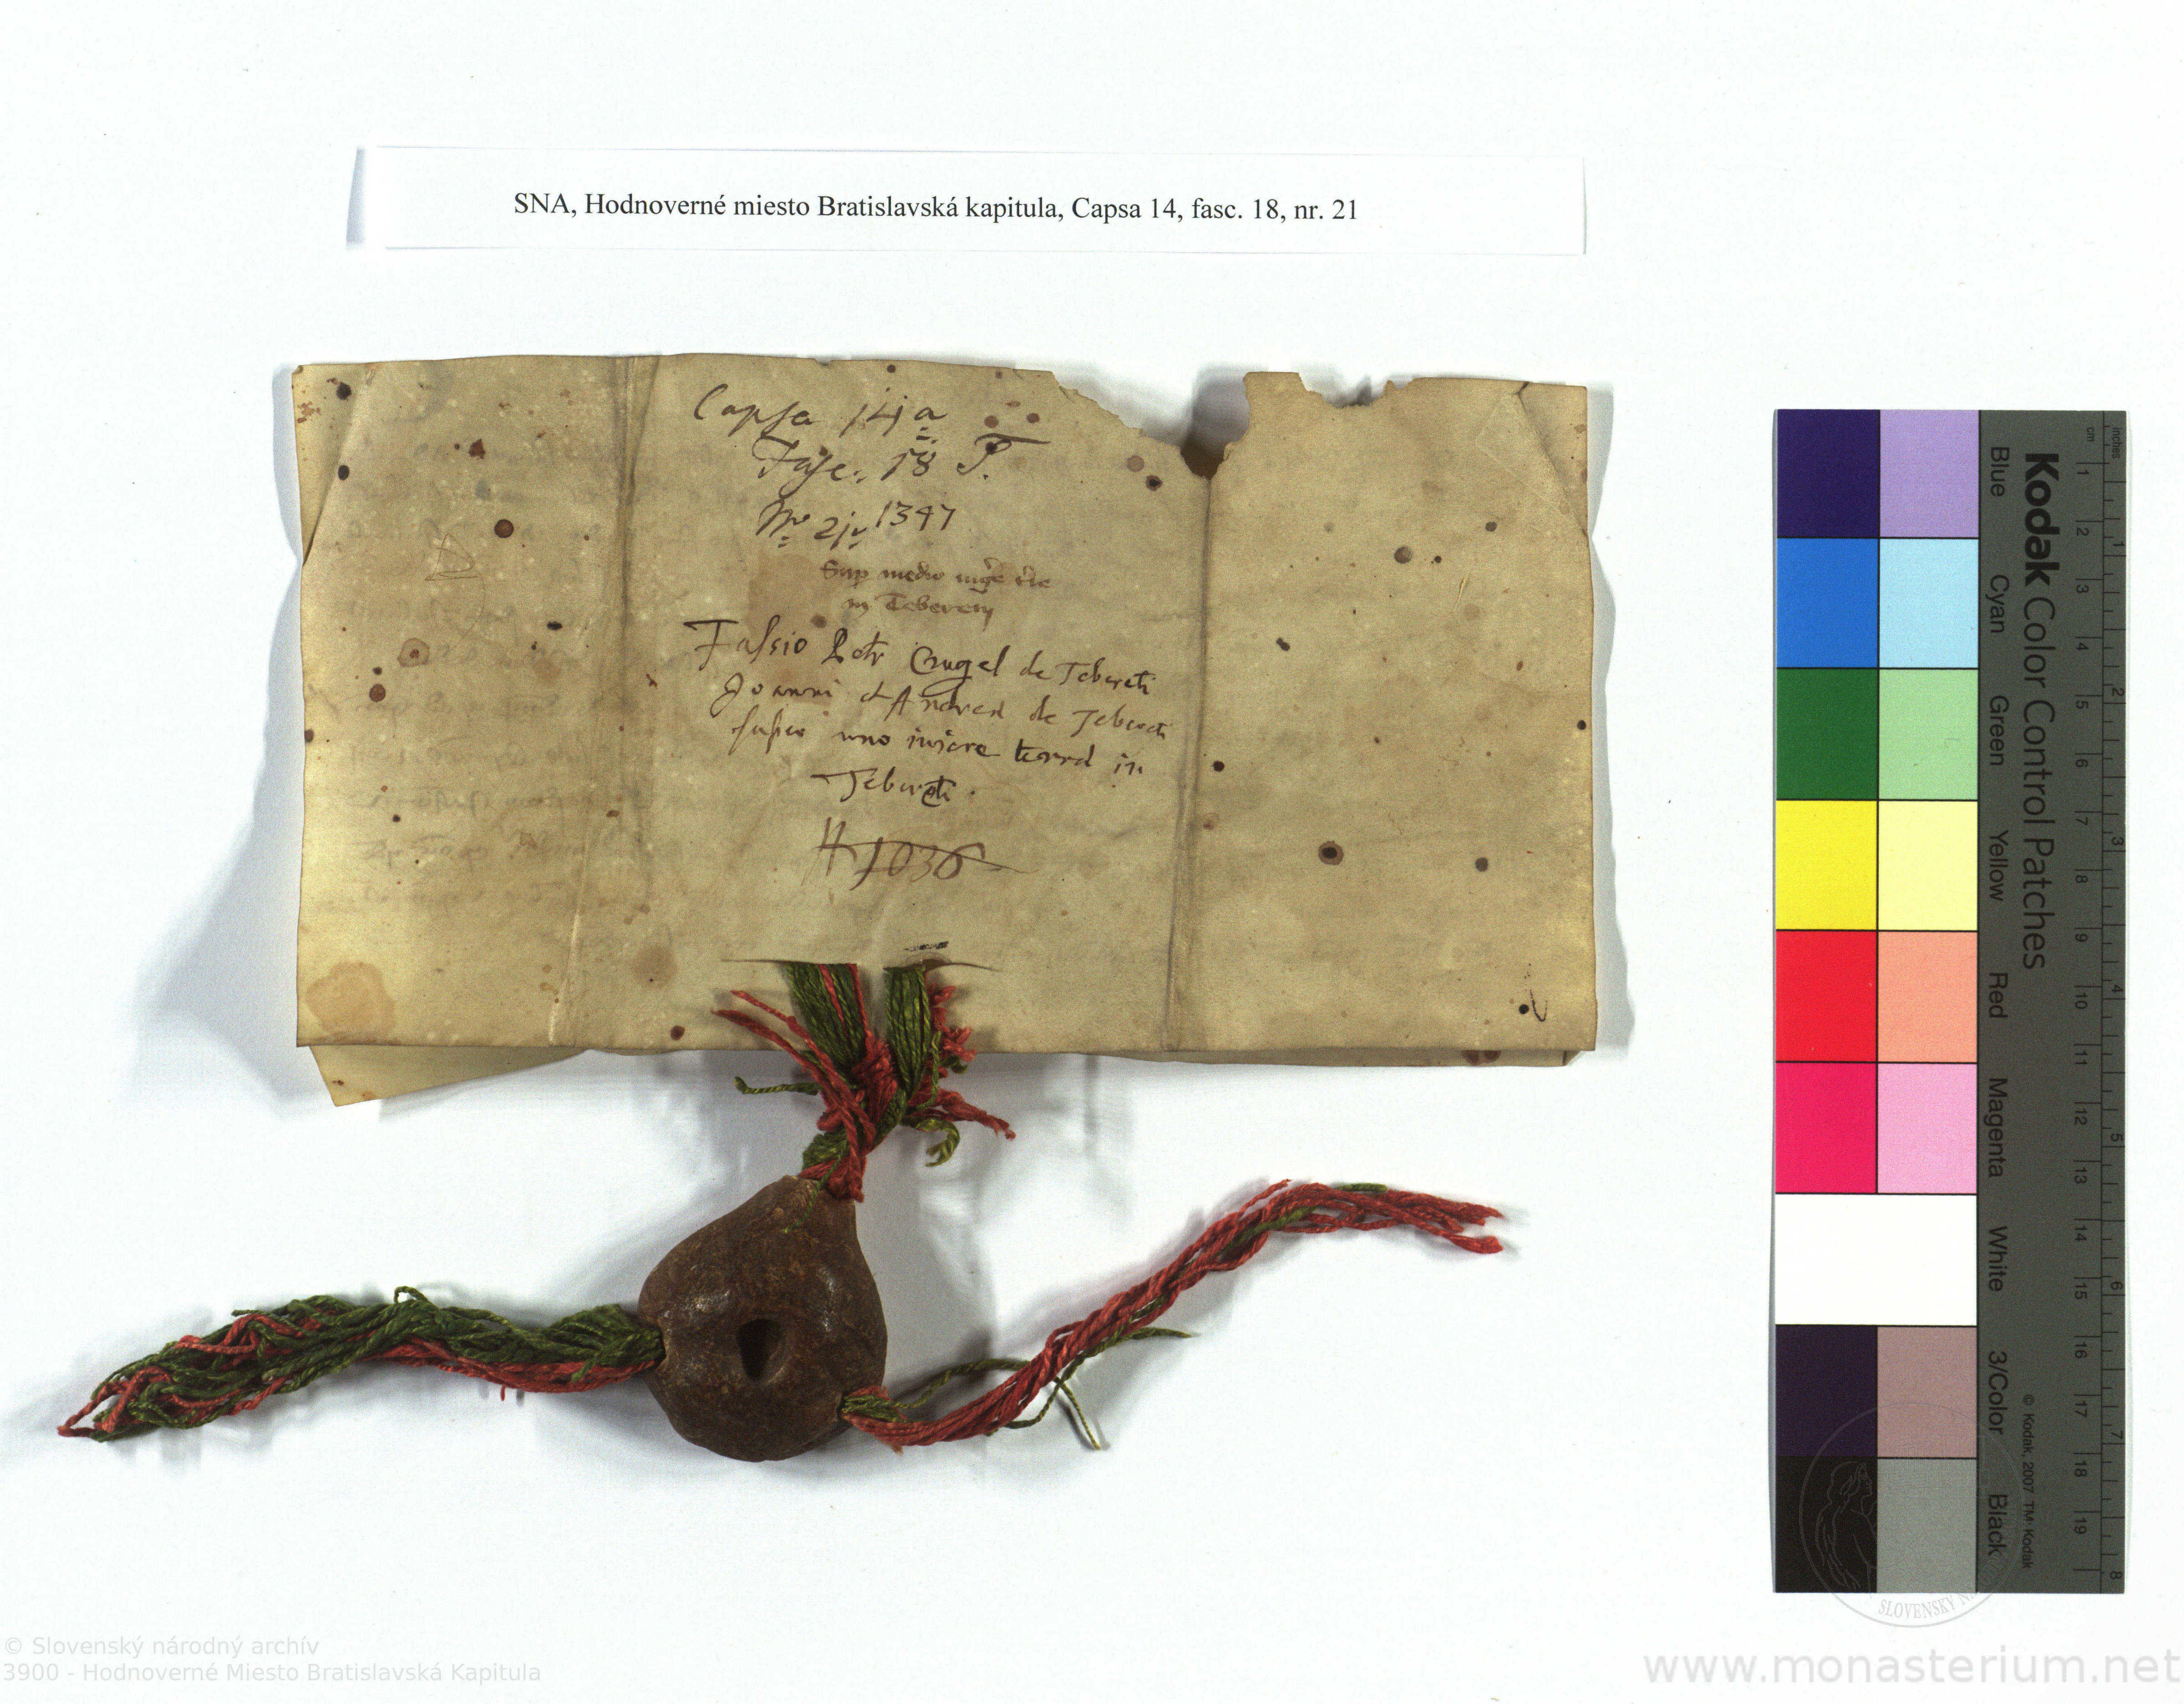 SNA, Hodnoverné miesto Bratislavská kapitula, Capsa 14, fasc. 18, nr. 21
Capsa 14 a
Fasc. 18 P.
Nro 21. 1347
Sup medio
in Teberety
Fassio Petr Crugel de Tebereti
Joanni et Andreæ de Tebereti
super uno terræ in
Tebereti.
1036
Kodak Color Control Patches
Blue Cyan Green Yellow Red Magenta White 3/Color Black
© Kodak, 2007 TM: Kodak
cm 1 2 3 4 5 6 7 8 9 10 11 12 13 14 15 16 17 18 19
inches 1 2 3 4 5 6 7 8
SLOVENSKÝ N
© Slovenský národný archív
3900 - Hodnoverné Miesto Bratislavská Kapitula
www.monasterium.net